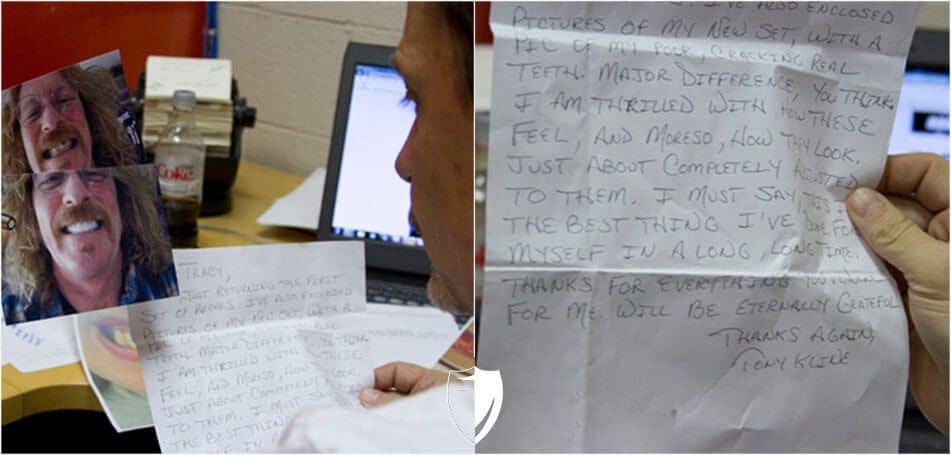 Coke
TRACY,
JUST RETURNING THE FIRST
SET OF UPPERS. I'VE ALSO ENCLOSED
PICTURES OF MY NEW SET, WITH A
PIC OF MY POOR, REAL
TEETH. MAJOR DIFFERENCE, YOU THINK
I AM THRILLED WITH THESE
FEEL, AND MORESO, HOW LOOK
JUST ABOUT COMPLETELY
TO THEM. I MUST SAY
THE BEST THING
MYSELF IN A
I'VE ALSO ENCLOSED
PICTURES OF MY NEW SET, WITH A
PIC OF MY POOR, CRACKING REAL
TEETH. MAJOR DIFFERENCE, YOU THINK
I AM THRILLED WITH HOW THESE
FEEL, AND MORESO, HOW THEY LOOK.
JUST ABOUT COMPLETELY ADJUSTED
TO THEM. I MUST SAY, THIS IS
THE BEST THING I'VE DONE FOR
MYSELF IN A LONG, LONG TIME.
THANKS FOR EVERYTHING YOU'VE
FOR ME. WILL BE ETERNALLY GRATEFUL
THANKS AGAIN,
TONY KLINE